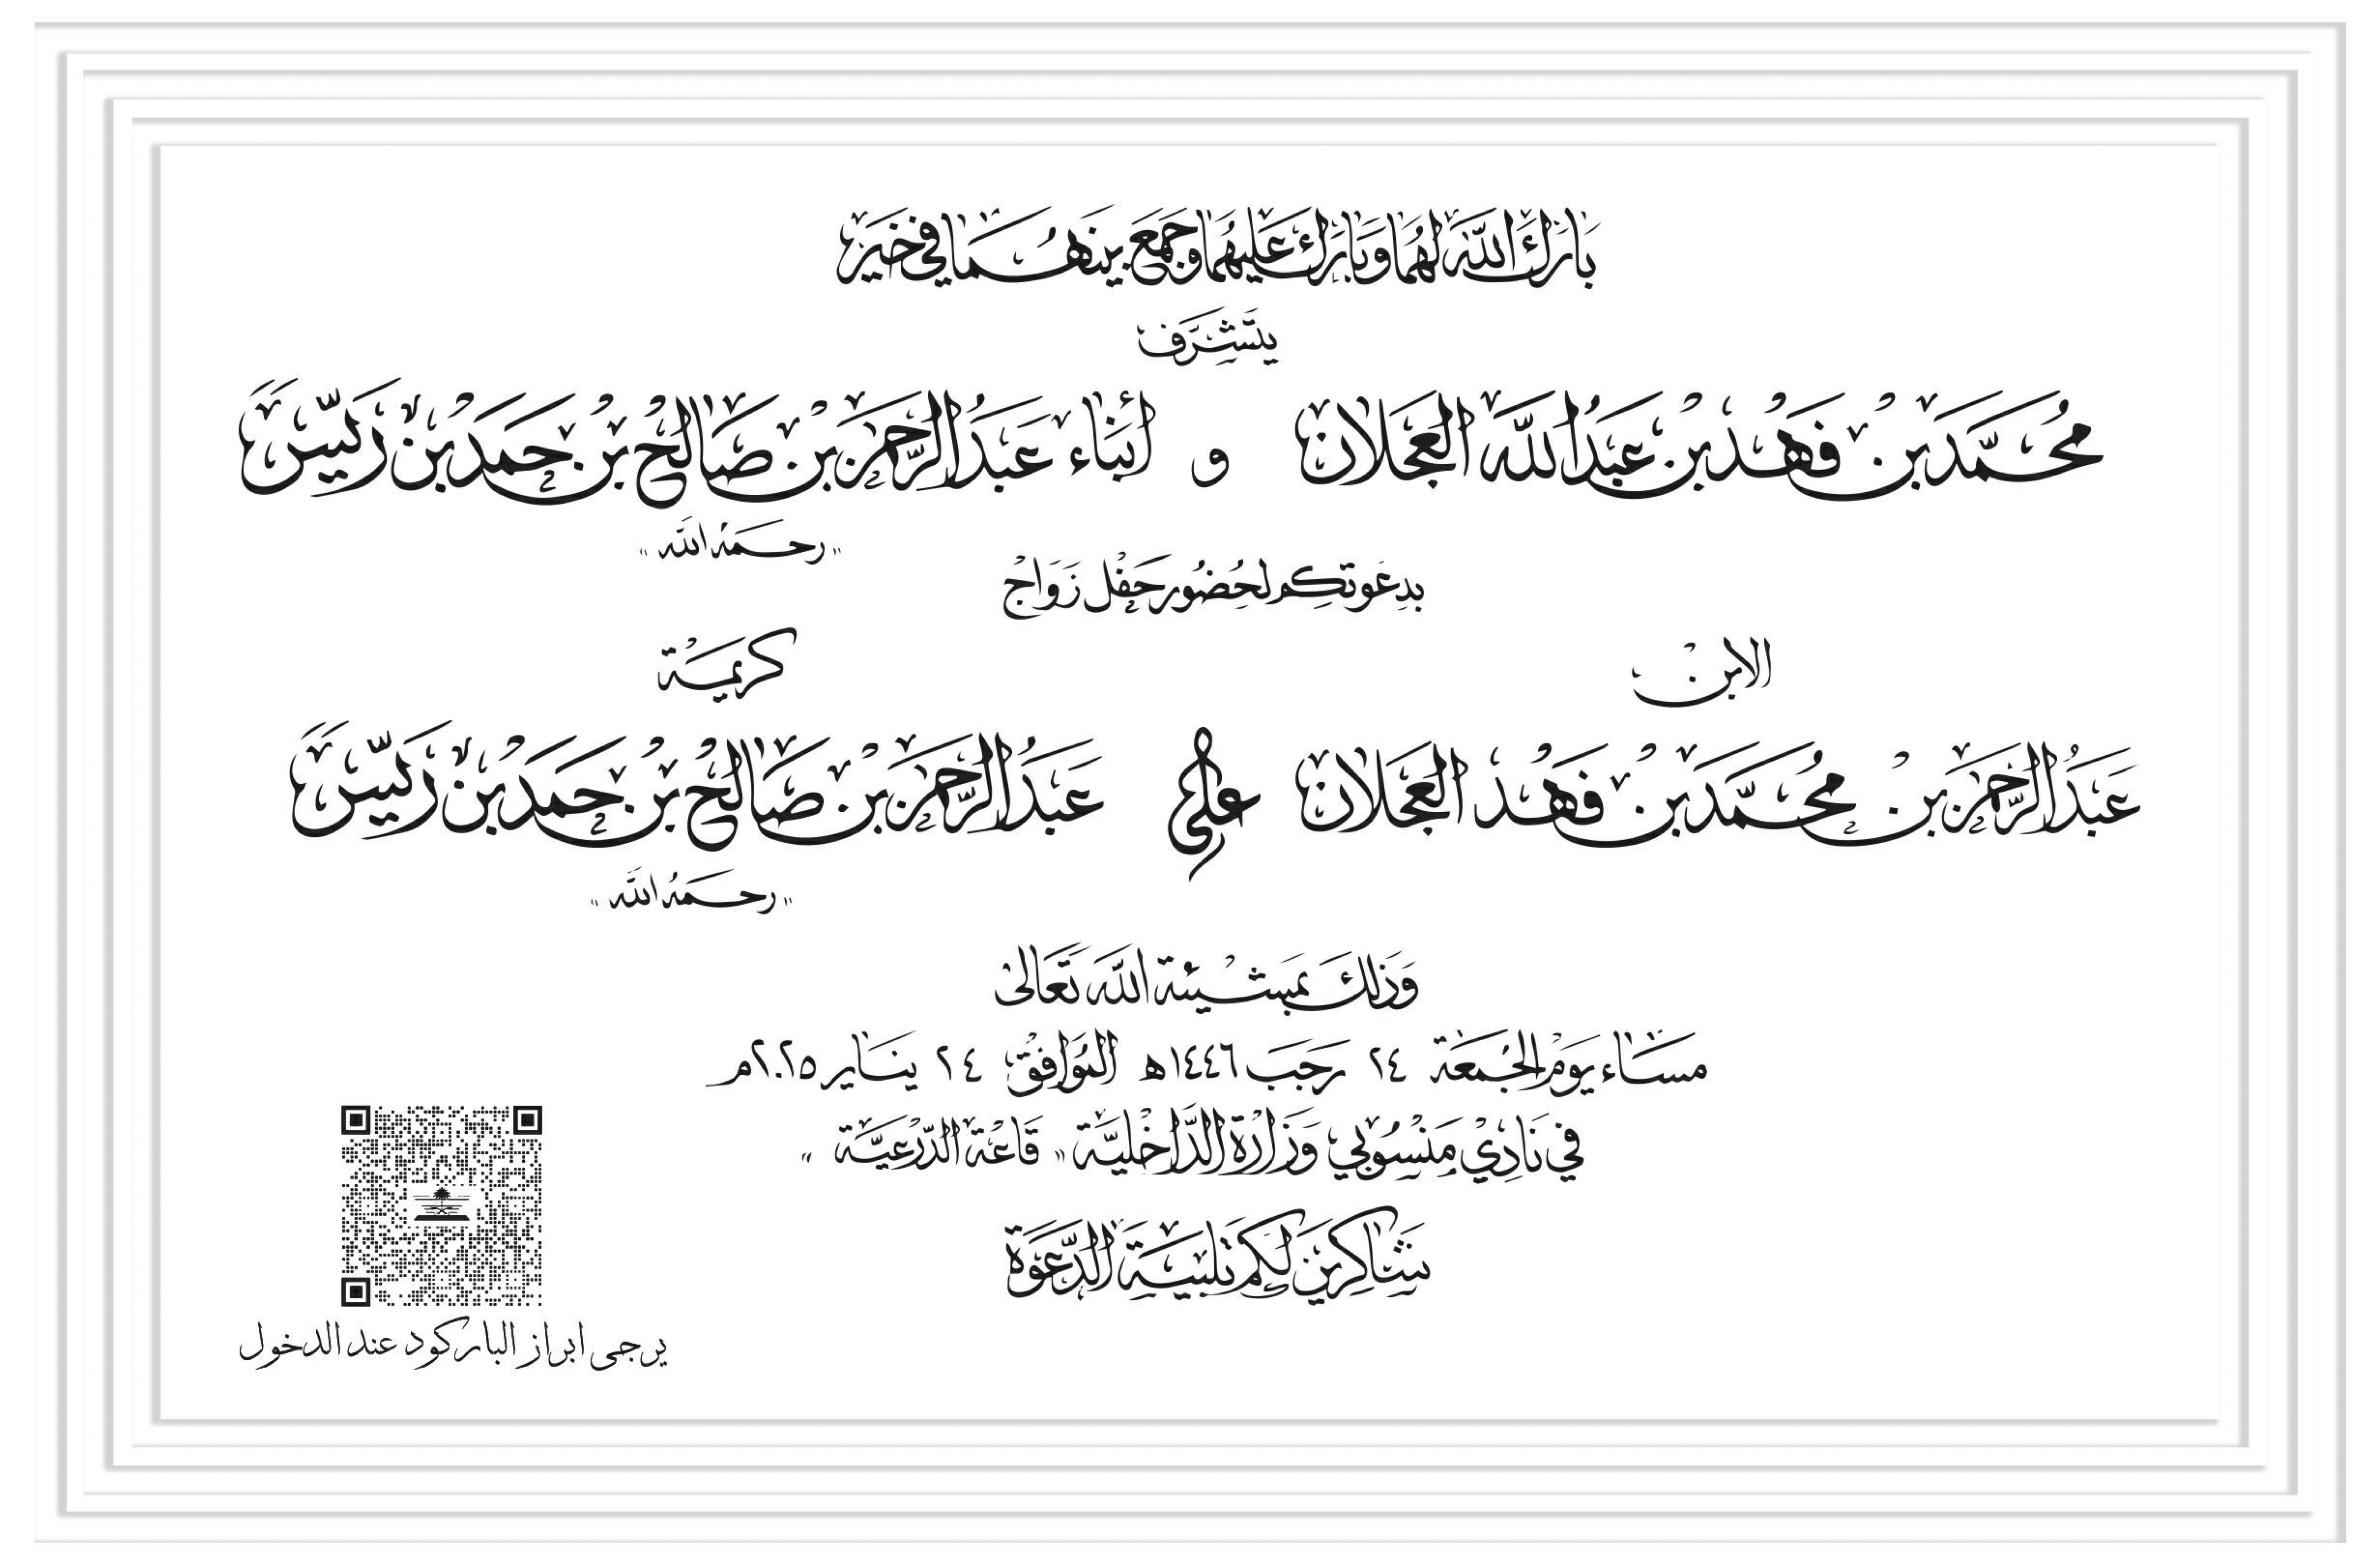 بَارَكَ اللَّهُ لَهُمَا وَبَارَكَ عَلَيْهُمَا وَجَمَعَ بَيْنَهُمَا فِي خَيْرٍ
يَتَشَرَّف
مُحَمَّد بن فَهْد بْن عَبْدُ اللَّه العَجْلان و أَبْنَاء عَبْدُ الرَّحْمَن بْن صَالِح بْن حَمَد بن رُيِّسْ
"رحمَهُ اللَّه"
بِدِعَوتكِم لحُضُور حَفْل زَوَاجْ
الابنْ كَرِيمَة
عَبْدُ الرَّحْمَن بنْ مُحَمَّد بْن فَهْد العَجْلان على عَبْدُ الرَّحْمَن بْن صَالِح بْن حَمَد بن رُيِّسْ
"رحمَهُ اللَّه"
وَذَلِكَ بِمَشْيئَة اللَّه تَعَالى
مسَاء يَوْم الجُمعَة ٢٤ رَجَب ١٤٤٦ه المُوَافِقْ ٢٤ ينَاير ٢٠٢٥م
فِي نَادِيْ مَنْسُوْبِي وَزَارَة الدَّاخْلِيَّة " قَاعَة الدّرْعِيَّة "
شَاكِرِينَ لَكُم تَلبيَةَ الدَّعْوَة
يرجى ابراز الباركود عند الدخول